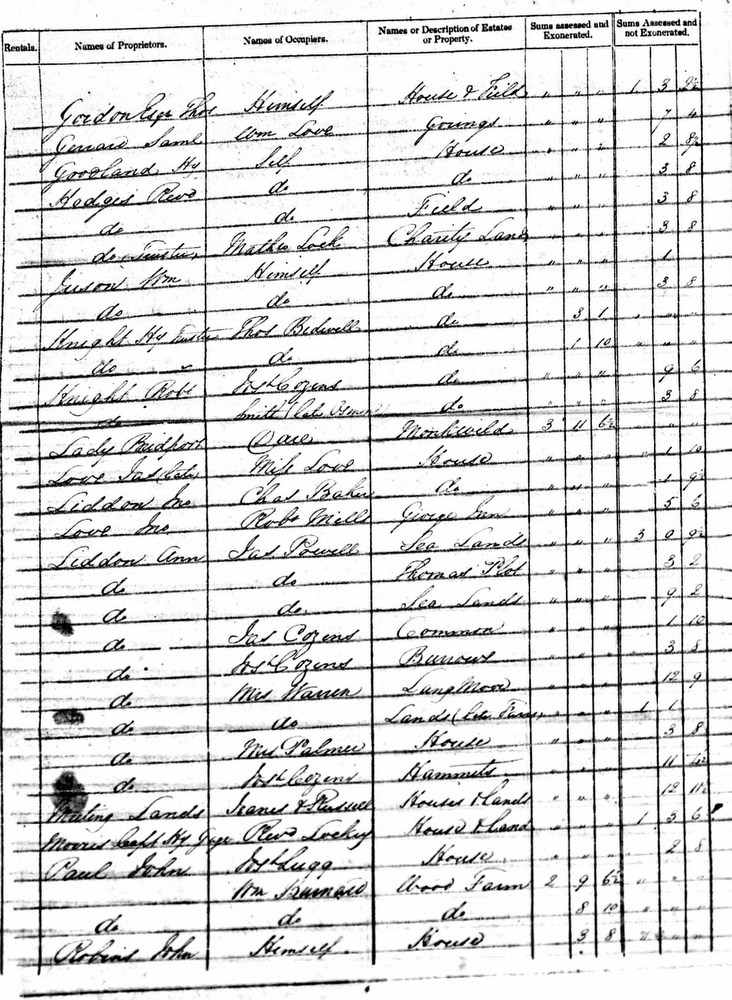 Rentals. Names of Proprietors. Names of Occupiers. Names or Description of Estates or Property. Sums assessed and Exonerated. Sums Assessed and not Exonerated.
Gordon Esqr Thos Himself House & Field " " " 1 3 2½
Saml Wm Love Gorings " " " 7 4
Goodland Hy Self House " " " 2 8½
Hodges Revd do do " " " 3 8
do do Field " " " 3 8
do Trustees Mathw Lock Charity Land " " " 3 8
Juson Wm Himself House " " " 1
do do do " " " 3 8
Knight Hy Trustee Thos Bidwell do 3 1 " " "
do " do do 1 10 " " "
Knight Robt Josh Cozens do " " " 9 6
do Smith (late do " " " 3 8
Lady Bridport Dare Monkwild 3 11 6½ " " "
Love Jas (late) Miss Love House " " " " 1 10
Liddon Jno Chas Baker do " " " 1 9½
Love Jno Robt Mills George Inn " " " 5 6
Liddon Ann Jas Powell Sea Lands " " " 3 0 9½
do do Thomas Plot " " " 3 2
do do Sea Lands " " " 9 2
do Jas Cozens Common " " " 1 10
do Josh Cozens Burrows " " " 3 8
do Mrs Warren Lang Moor " " " 12 9
do do Lands (late Farm) " " " 1 1
do Mrs Palmer House " " " 3 8
do Josh Cozens Hammets " " " 11 4½
Meeting Lands & Russell Houses & Lands " " " 12 11½
Morris Capt Hy Gage Revd Lockey House & Land " " " 1 3 6
Paul John Josh Lugg House " " " 2 8
Wm Burnard Wood Farm 2 9 6½ " " "
do do do 8 10 " " "
Robins John Himself House 3 8 " " "